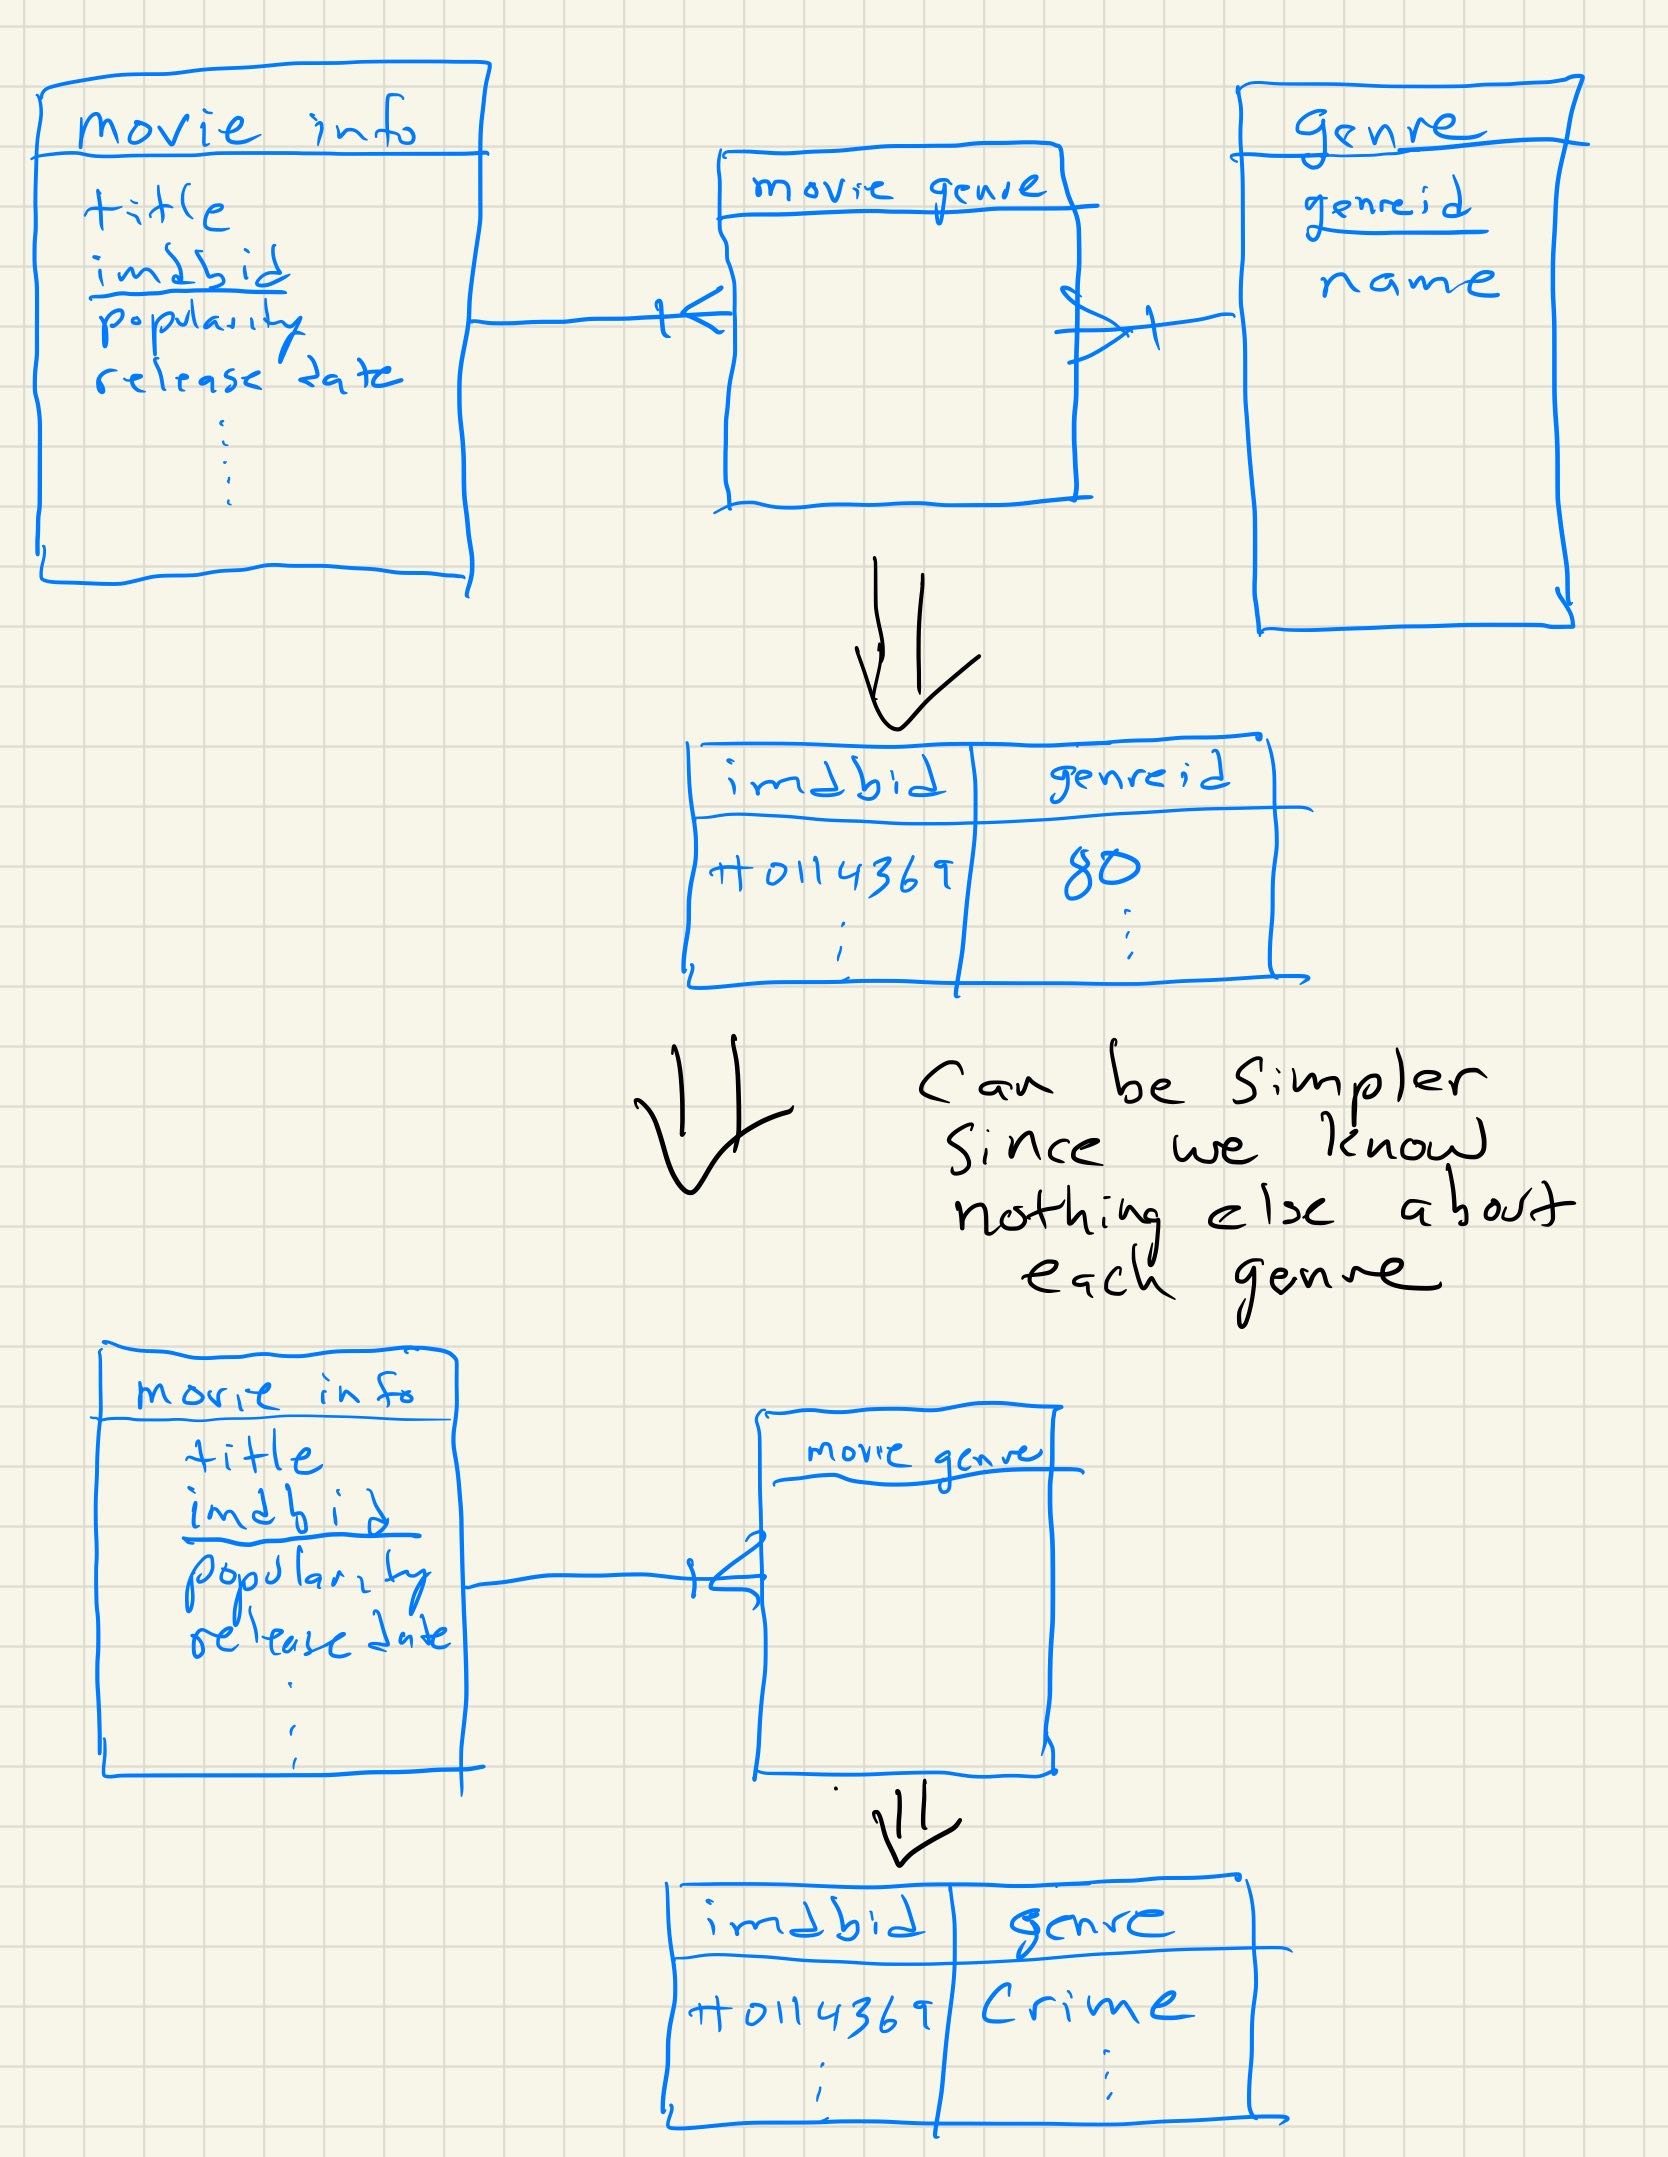 movie info
title
imdbid
popularity
release date
movie genre
genre
genreid
name
imdbid genreid
tt0114369 80
Can be simpler
since we know
nothing else about
each genre
movie info
title
imdbid
popularity
release date
movie genre
imdbid genre
tt0114369 Crime